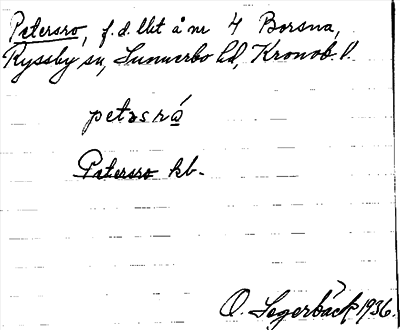 Petersro, f.d. lht å nr 4 Borsna,
Ryssby sn, Sunnerbo hd, Kronob. l.
petərsrå
Petersro kb.
O. Segerbäck 1936.